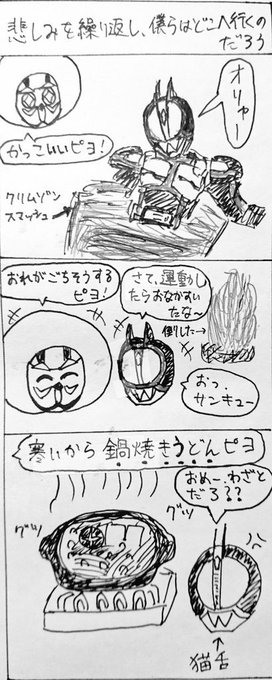 悲しみを繰り返し、僕らはどこへ行くの
だろう
オリャー
かっこいいピヨ!
クリムゾン
スマッシュ
おれがごちそうする
ピヨ!
さて、運動し
たらおなかすい
たな〜
倒した→
おっ、
サンキュー
寒いから鍋焼きうどんピヨ
おめー、わざと
だろ??
グツ
グツ
猫舌